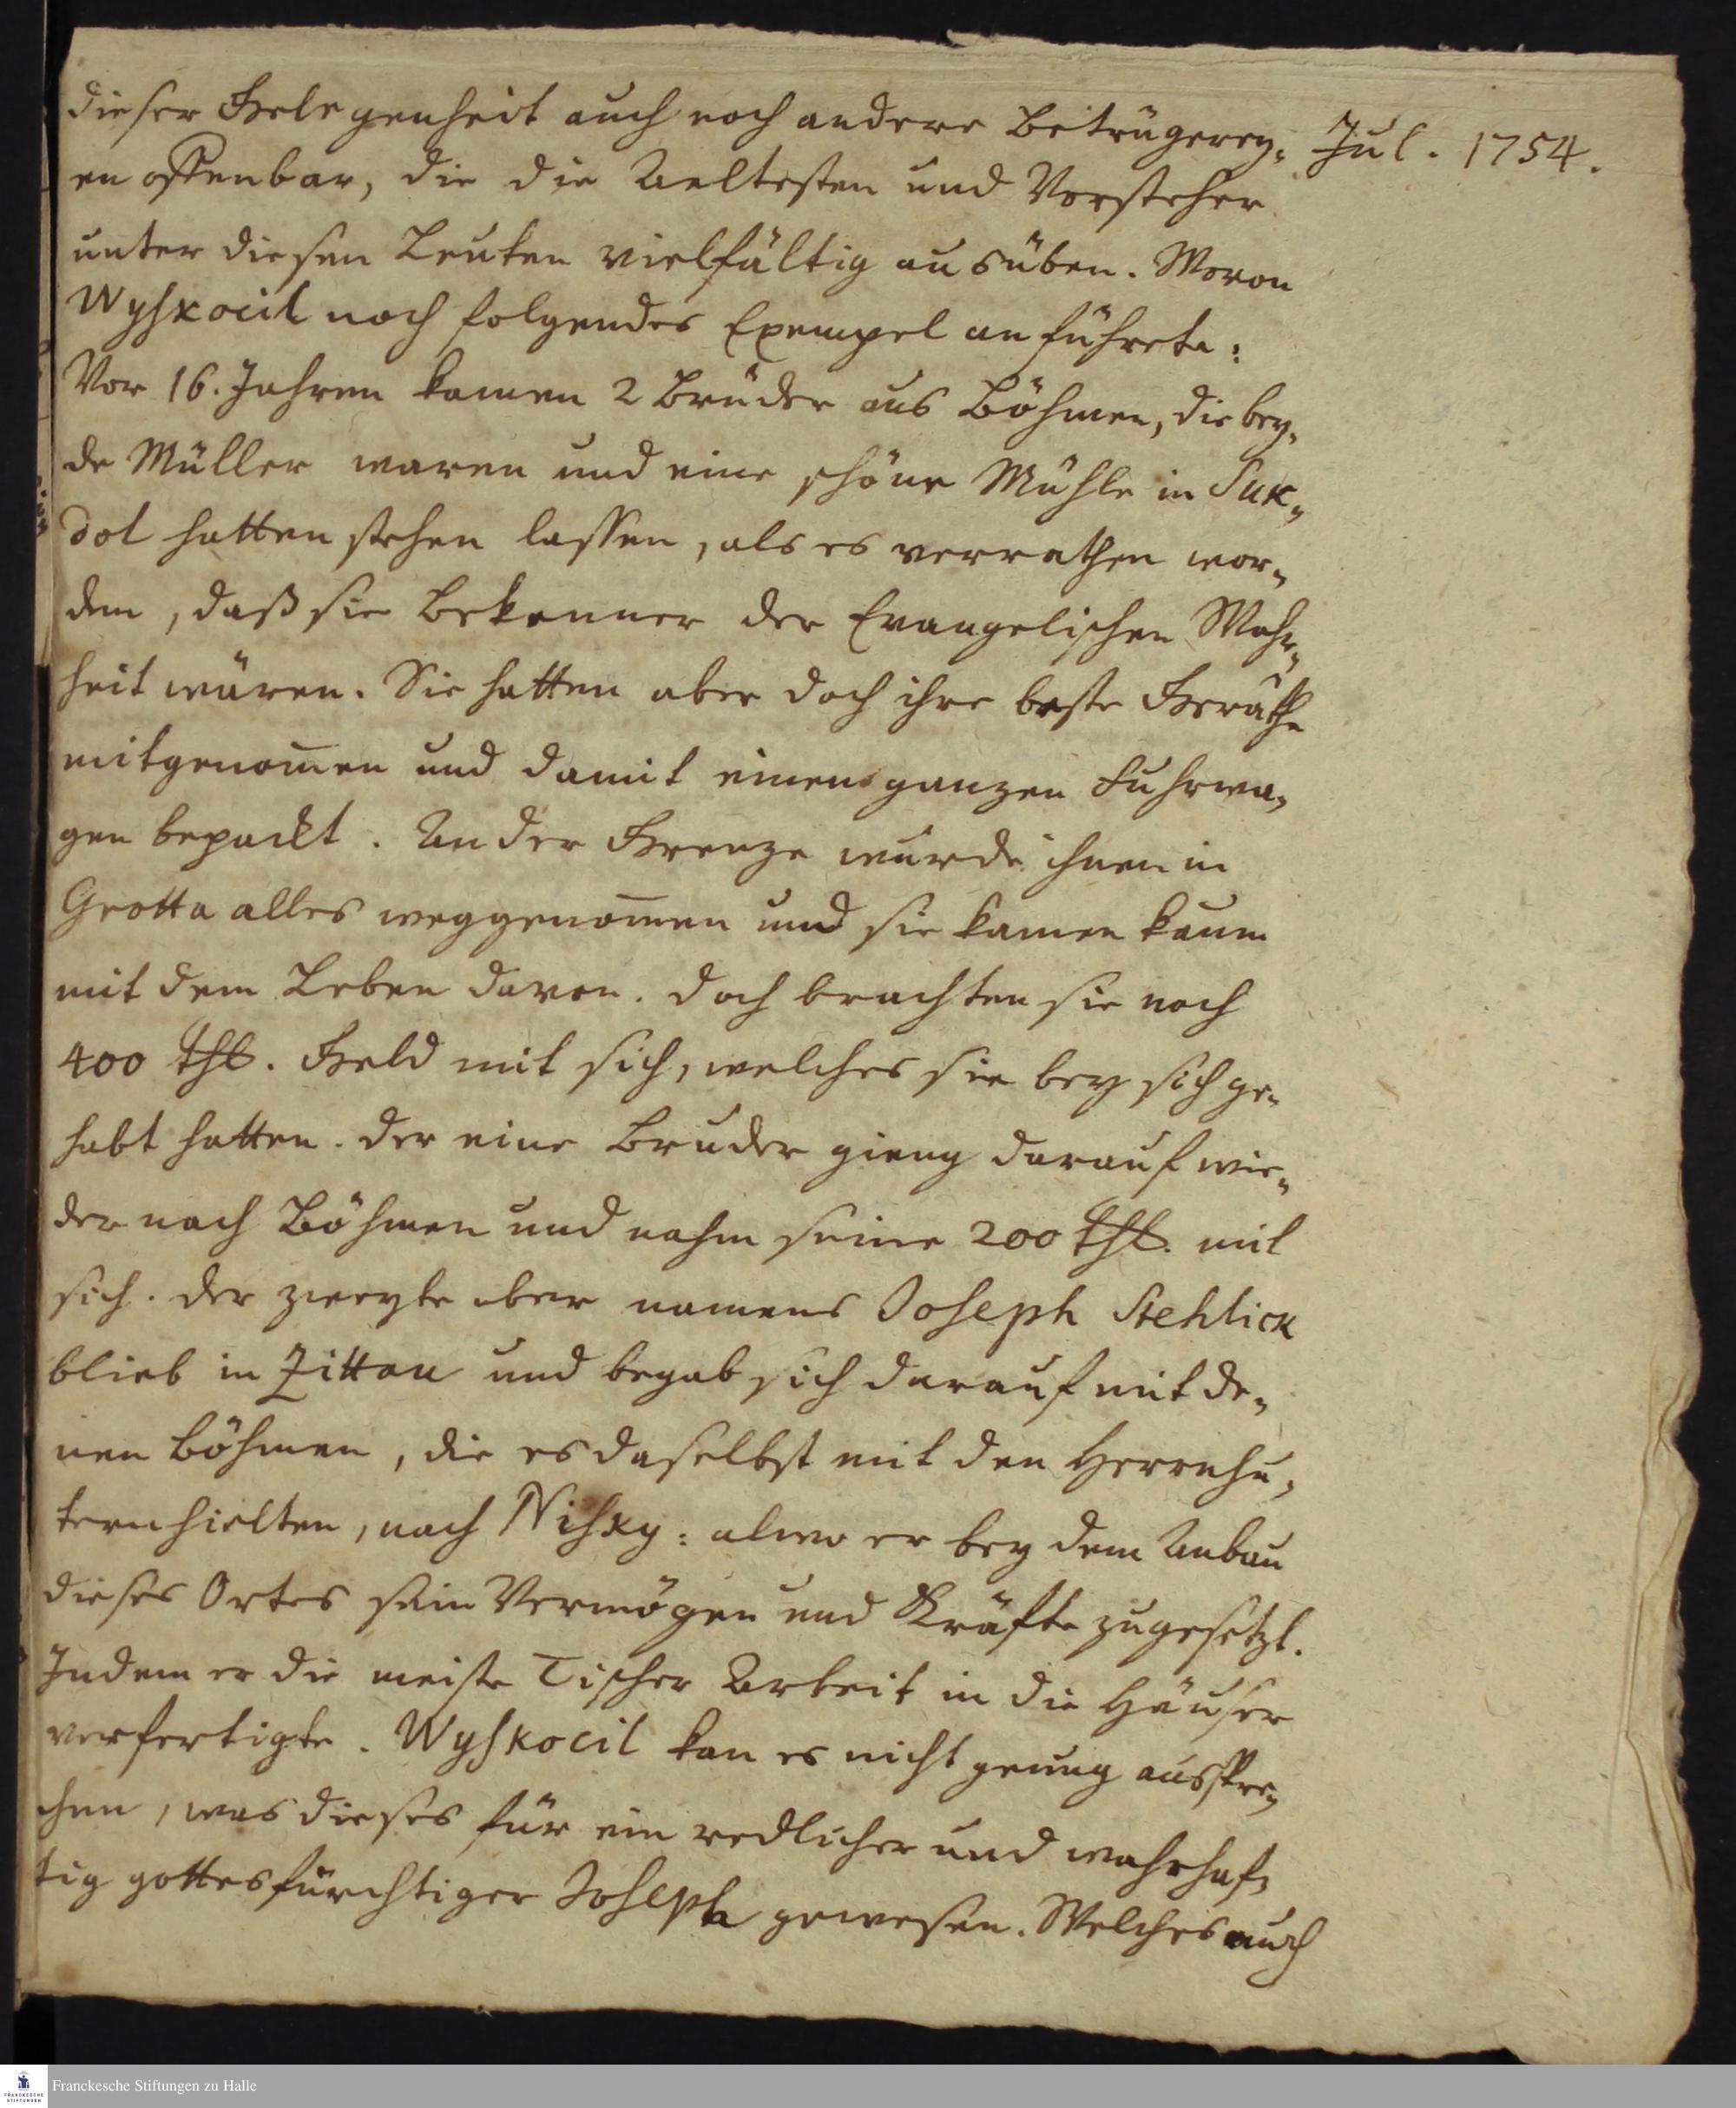 dieser Gelegenheit auch noch andere Betrügerey- Jul. 1754.
en offenbar, die die Aeltesten und Vorsteher
unter diesen Leuten vielfältig ausüben. Wovon
Wyskocil noch folgendes Exempel anführete:
Vor 16. Jahren kamen 2 Brüder aus Böhmen, die bey-
de Müller waren und eine schöne Mühle in Suk-
dol hatten stehen lassen, als es verrathen wor-
den, daß sie Bekenner der Evangelischen Wahr-
heit wären. Sie hatten aber doch ihre beste Geräthe
mitgenom̅en und damit einen ganzen Fuhrwa-
gen bepackt. An der Grenze wurde ihnen in
Grotta alles weggenom̅en und sie kamen kaum
mit dem Leben davon. doch brachten sie noch
400 thl. Geld mit sich, welches sie bey sich ge-
habt hatten. der eine Bruder gieng darauf wie-
der nach Böhmen und nahm seine 200 thl. mit
sich. der zweyte aber namens Joseph Stehlick
blieb in Zittau und begab sich darauf mit de-
nen Böhmen, die es daselbst mit den Herrnhu-
tern hielten, nach Nisky: alwo er bey dem Anbau
dieses Ortes sein Vermögen und Kräfte zugesetzt.
Indem er die meiste Tischer Arbeit in die Häuser
verfertigte. Wyskocil kan es nicht genug ausspre-
chen, was dieses für ein redlicher und wahrhaf-
tig gottesfürchtiger Joseph gewesen. Welches auch
Franckesche Stiftungen zu Halle
FRANCKESCHE
STIFTUNGEN